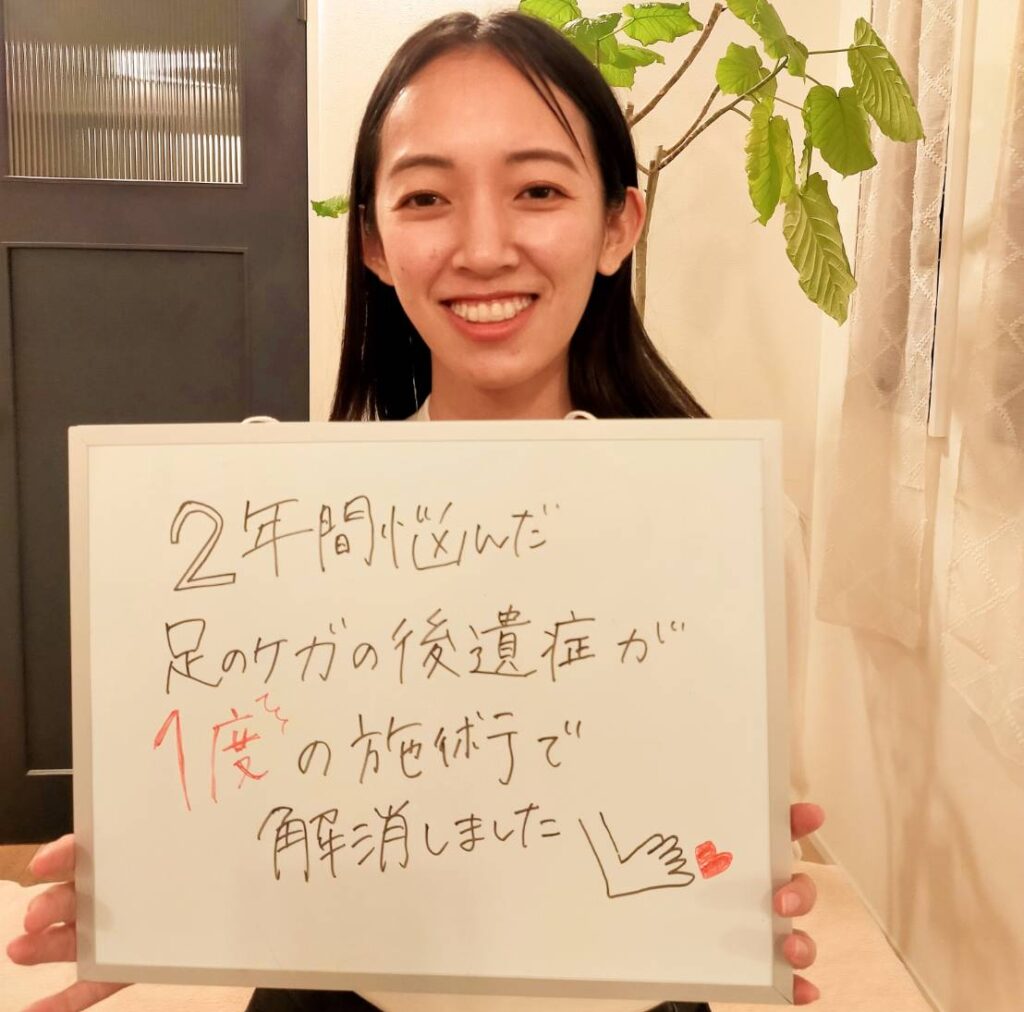 2年間悩んだ
足のケガの後遺症が
1度の施術で
解消しました